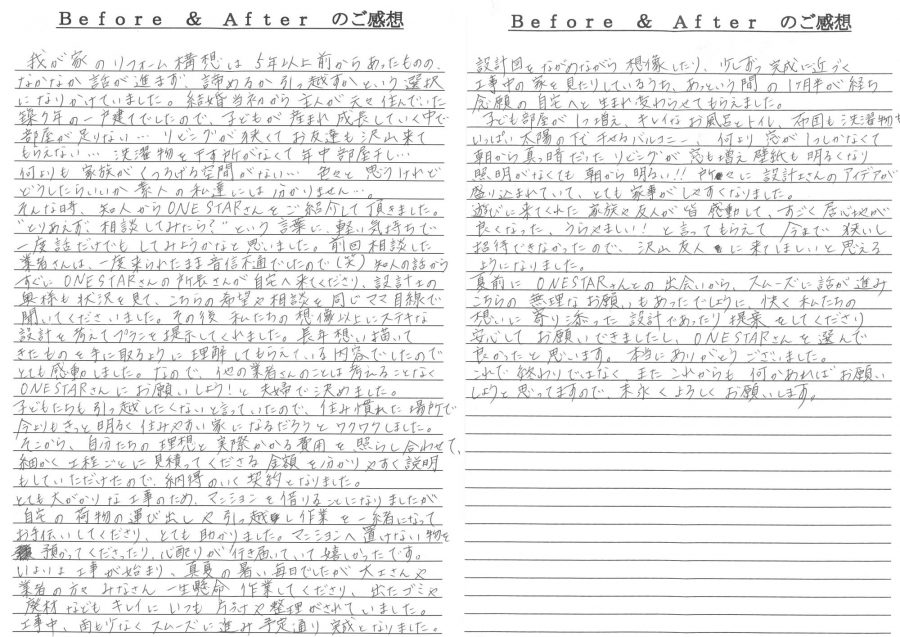 Before & After のご感想
我が家のリフォーム構想は5年以上前からあったものの、
なかなか話が進まず、諦めるか引っ越すかという選択
になりかけていました。結婚当初から主人が元々住んでいた
築9年の一戸建てでしたので、子どもが産まれ成長していく中で
部屋が足りない… リビングが狭くてお友達も沢山来て
もらえない… 洗濯物を干す所がなくて年中部屋干し…
何よりも家族がくつろげる空間がない… 色々と思うけれど
どうしたらいいか素人の私達には分かりません…
そんな時、知人からONE STARさんをご紹介して頂きました。
"とりあえず、相談してみたら?"という言葉に、軽い気持ちで
一度話だけでもしてみようかなと思いました。前回相談した
業者さんは、一度来られたまま音信不通でしたので(笑) 知人の話から
すぐにONE STARさんの所長さんが自宅へ来てくださり、設計士の
奥様も状況を見て、こちらの希望や相談を同じママ目線で
聞いてくださいました。その後 私たちの想像以上にステキな
設計を考えてプランを提示してくれました。長年想い描いて
きたものを手に取るように理解してもらえている内容でしたので
とても感動しました。なので、他の業者さんのことは考えることなく
ONE STARさんにお願いしよう!と夫婦で決めました。
子どもたちも引っ越したくないと言っていたので、住み慣れた場所で
今よりもきっと明るく住みやすい家になるだろうとワクワクしました。
そこから、自分たちの理想と実際かかる費用を照らし合わせて、
細かく工程ごとに見積ってくださる金額を分かりやすく説明
もしていただけたので、納得のいく契約となりました。
とても大がかりな工事のため、マンションを借りることになりましたが
自宅の荷物の運び出しや引っ越し作業を一緒になって
お手伝いしてくださり、とても助かりました。マンションへ置けない物を
預かってくださったり、心配りが行き届いていて嬉しかったです。
いよいよ工事が始まり、真夏の暑い毎日でしたが大工さんや
業者の方々みなさん一生懸命作業してくださり、出たゴミや
廃材などもキレイにいつも片付けや整理がされていました。
工事中、雨も少なくスムーズに進み予定通り完成となりました。
Before & After のご感想
設計図をながめながら想像したり、少しずつ完成に近づく
工事中の家を見たりしているうち、あっという間の1ヶ月半が経ち
念願の自宅へと生まれ変わらせてもらえました。
子ども部屋が1つ増え、キレイなお風呂とトイレ、布団も洗濯物も
いっぱい太陽の下で干せるバルコニー、何より窓が1つしかなくて
朝から真っ暗だったリビングが窓も増え壁紙も明るくなり
照明がなくても朝から明るい!! 所々に設計士さんのアイデアが
盛り込まれていて、とても家事がしやすくなりました。
遊びに来てくれた家族や友人が皆感動して、すごく居心地が
良くなった、うらやましい!と言ってもらえて今まで狭いし
招待できなかったので、沢山友人に来てほしいと思える
ようになりました。
夏前にONE STARさんとの出会いから、スムーズに話が進み
こちらの無理なお願いもあったでしょうに、快く私たちの
想いに寄り添った設計であったり提案をしてくださり
安心してお願いできましたし、ONE STARさんを選んで
良かったと思います。本当にありがとうございました。
これで終わりではなく、またこれからも何かあればお願い
しようと思ってますので、末永くよろしくお願いします。